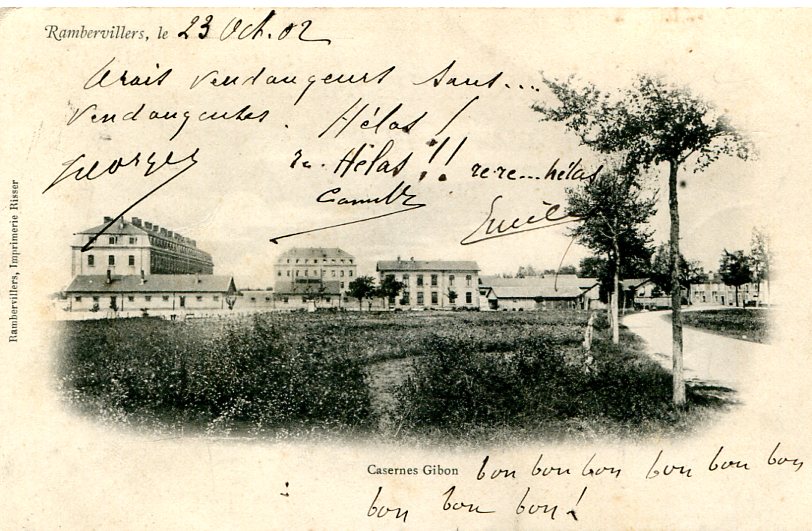 Rambervillers, le 23 Oct. 02
trois vendangeurs sans....
vendangeuses. Hélas!
Georges re-Hélas!! re-re...hélas
Camille Emile
Rambervillers, Imprimerie Risser
Casernes Gibon bon bon bon bon bon bon
bon bon bon!